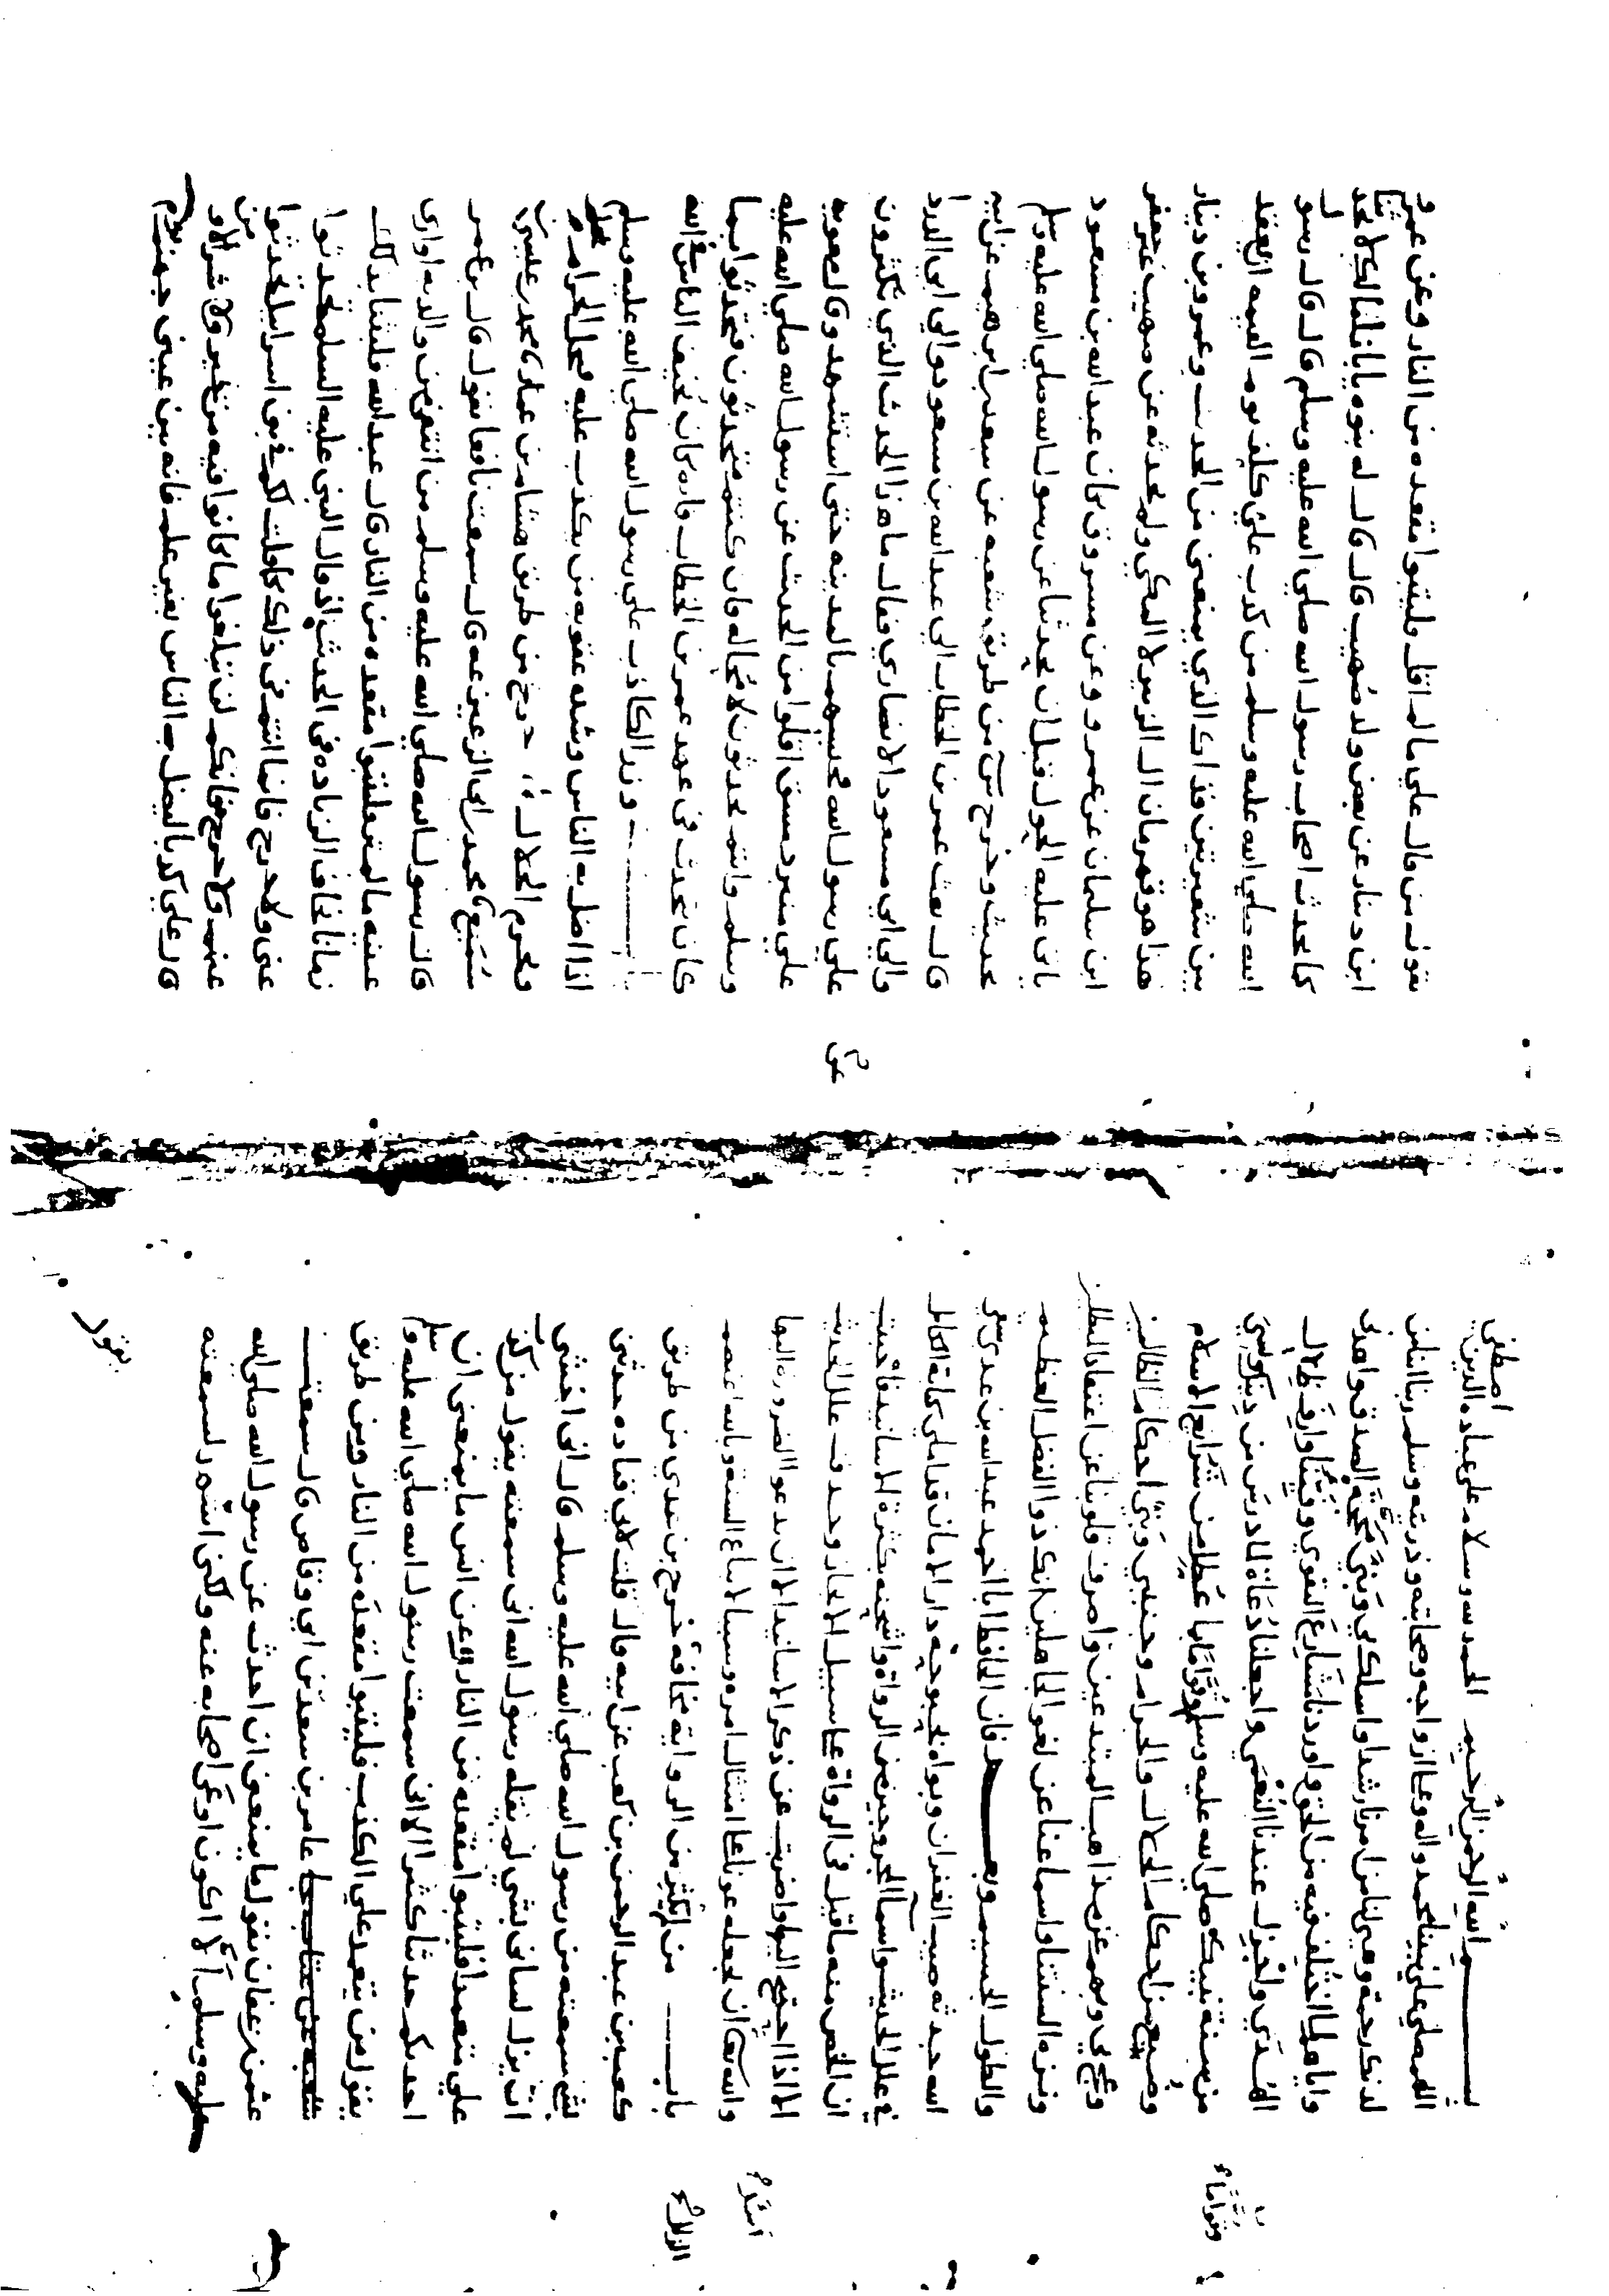 بسم الله الرحمن الرحيم الحمد لله وسلام على عباده الذين اصطفى
اللهم صلي على نبينا محمد واله وعلى ازواجه وصحابته وذريته وسلم ربنا اتنا من
لدنك رحمة وهيئ لنا من امرنا رشدا واسلك بي وبنيّ محجة الصدق واهدني
واياهم لما اختلف فيه من الحق واوردنا شارع التقوى
الهدى واجزل عندنا النعمى واجعلنا دعاة لما درس من
من سنة نبيك صلى الله عليه وسلم من شرايع الاسلام
من احكام الحلال والحرام وجنبني وبنيّ احكام الظالمين
وبهم عن مذاهب المبتدعين واصرف قلوبنا عن اعتقاد المبطلين
ونزه السنتنا واسماعنا عن لغو الجاهلين انك ذو الفضل العظيم
والطول الجسيم وبعد فان الحافظ ابا احمد عبد الله بن عدي سقى
الله جدثه صيب الغفران وبواه بحبوحة دار الامان قد املى كتابه الكامل
في علل الحديث واسما المجروحين من الرواة واشحنه بكثرة الاسانيد فاحببت
ان الخص منه ما قيل في الرواة على سبيل الايجاز وحذفت علل الحديث
الا اذا احتيج اليها واضربت عن ذكر الاسانيد الا ان تدعو الضرورة اليها
والله ان يجعله عونا على امتثال امره وسببا لاتباع السنة وبالله اعتصم
باب من الكثير من الرواية مخافة خرج بن عدي من طريق
كعب بن عبد الرحمن بن كعب عن ابيه قال قلت لابي قتادة حدثني
بشي سمعته من رسول الله صلى الله عليه وسلم قال اني اخشى
ان يزل لساني بشي لم يقله رسول الله اني سمعته يقول من كذب
علي متعمدا فليتبوا مقعده من النار وعن انس ما يمنعني ان
احدثكم حديثا كثيرا الا اني سمعت رسول الله صلى الله عليه وسلم
يقول من تعمد علي الكذب فليتبوا مقعده من النار ومن طريق
عامر بن سعد بن ابي وقاص قال سمعت
عثمن بن عفان يقول ما يمنعني ان احدث عن رسول الله صلى الله
عليه وسلم الا اكون اوعى اصحابه عنه ولكني اشهد لسمعته
يقول
يقول من قال علي ما لم اقل فليتبوا مقعده من النار وعن عمرو
ابن دينار عن بعض ولد صهيب قال قال له بنوه يا ابانا ما لك لا تحدثنا
كما تحدث اصحاب رسول الله صلى الله عليه وسلم قال قال رسول
الله صلى الله عليه وسلم من كذب علي كلف يوم القيمة ان يعقد
بين شعيرتين فذاك الذي يمنعني من الحديث وعمرو بن دينار
هذا هو قهرمان ال الزبير لا المكي ولم يحدثه عن صهيب غير جعفر
ابن سليمان عن عمرو وعن مسروق كان عبد الله بن مسعود
ياتي عليه الحول قبل ان يحدثنا عن رسول الله صلى الله عليه وسلم
بحديث وخرج من طريق شعبة عن سعد بن ابرهيم عن ابيه
قال بعث عمر بن الخطاب الى عبد الله بن مسعود والى ابي الدردا
والى ابي مسعود الانصاري فقال ما هذا الحديث الذي تكثرون
على رسول الله فحبسهم بالمدينة حتى استشهد وقال معوية
على منبر دمشق اقلوا من الحديث عن رسول الله صلى الله عليه
وسلم وانتم محدثون لا محالة فان كنتم متحدثون فتحدثوا بما
كان يحدث في عهد عمر بن الخطاب فانه كان يخيف الناس في الله
باب وزر الكاذب على رسول الله صلى الله عليه وسلم
اذا اضل به الناس وشدة عقوبة من يكذب عليه فيحل الحرام
ويحرم الحلال خرج من طريق هشام بن عمار ثنا محمد بن عيسى بن
سميع ثنا محمد بن ابي الزعيزعة قال سمعت نافعا يقول قال بن عمر
قال رسول الله صلى الله عليه وسلم من افرى
عينيه ما لم تر فليتبوا مقعده من النار قال عبد الله فلبثنا بذلك
زمانا نخاف الزيادة في الحديث اذ قال النبي عليه السلم تحدثوا
عني ولا حرج فانما انتم في ذلك كما قلت لكم في بني اسرايل تحدثوا عن
عنهم ولا حرج فانكم لن تبلغوا ما كانوا فيه من خير ولا شر الا ومن
قال علي كذبا ليضل به الناس بغير علم فانه بين عيني جهنم يوم